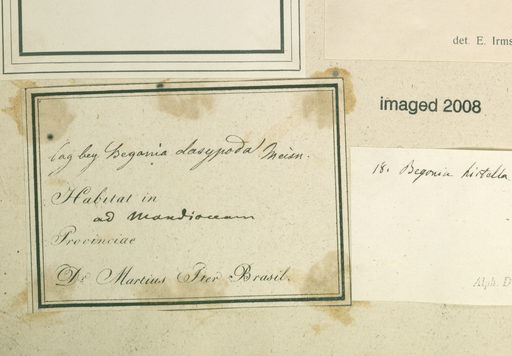 det. E. Irms
imaged 2008
lag bey Begonia dasypoda Meisn.
Habitat in
ad Mandioccam
Provinciae
Dr. Martius Iter Brasil.
18. Begonia hirtella
Alph. D